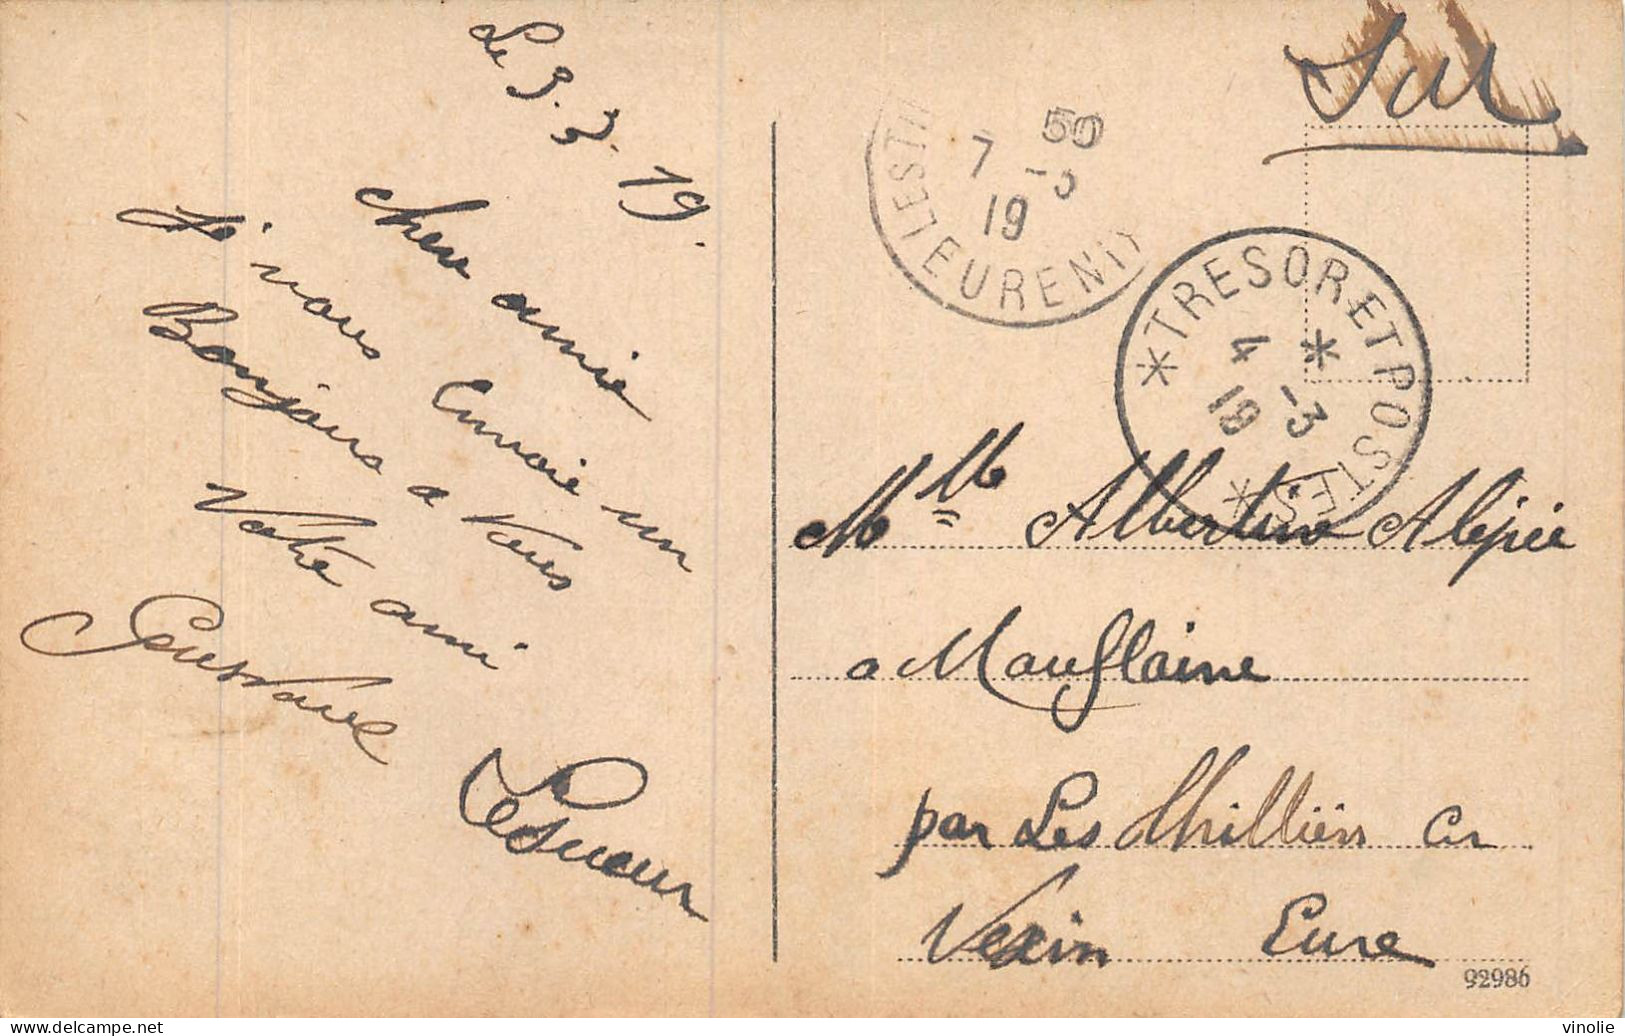 Le 3. 3. 19.
chere amie
Je vous Envoie un
Bonjours a Vous
Votre ami
Gustave
Lesueur
S M
50
7 -3
19
LES TI
EURE
TRESOR ET POSTES
4 -3
19
Mlle Albertine
a Mouflaine
par Les Thilliers en
Vexin Eure
92986
delcampe.net
vinolie